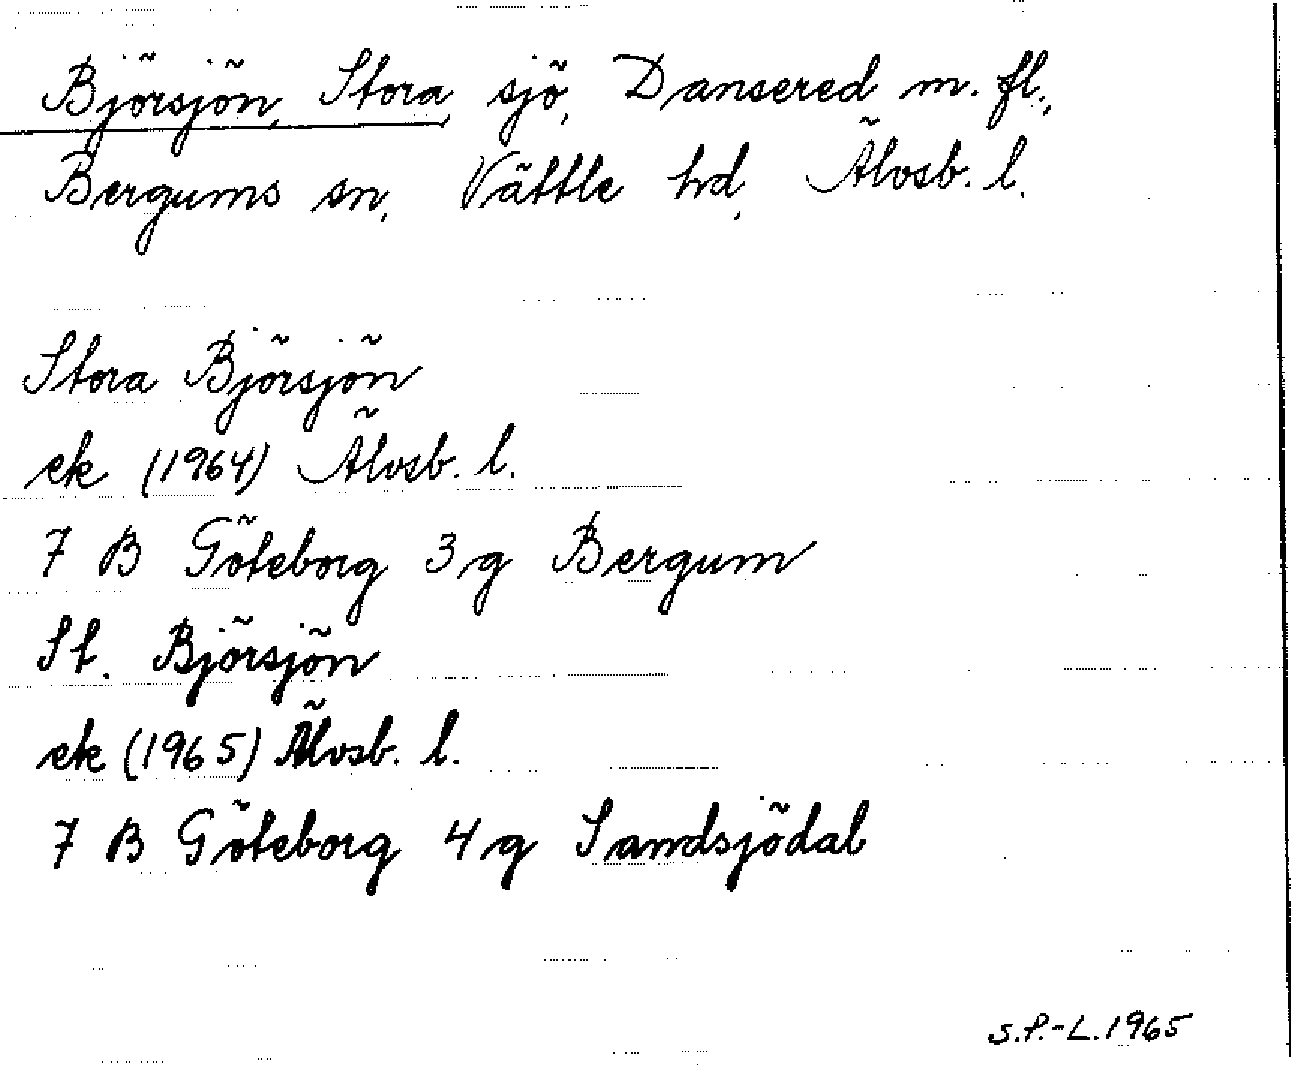 Björsjön, Stora, sjö, Dansered m. fl.,
Bergums sn, Vättle hd, Älvsb. l.
Stora Björsjön
ek (1964) Älvsb. l.
7 B Göteborg 3 g Bergum
St. Björsjön
ek (1965) Älvsb. l.
7 B Göteborg 4 g Sandsjödal
S.P.-L. 1965